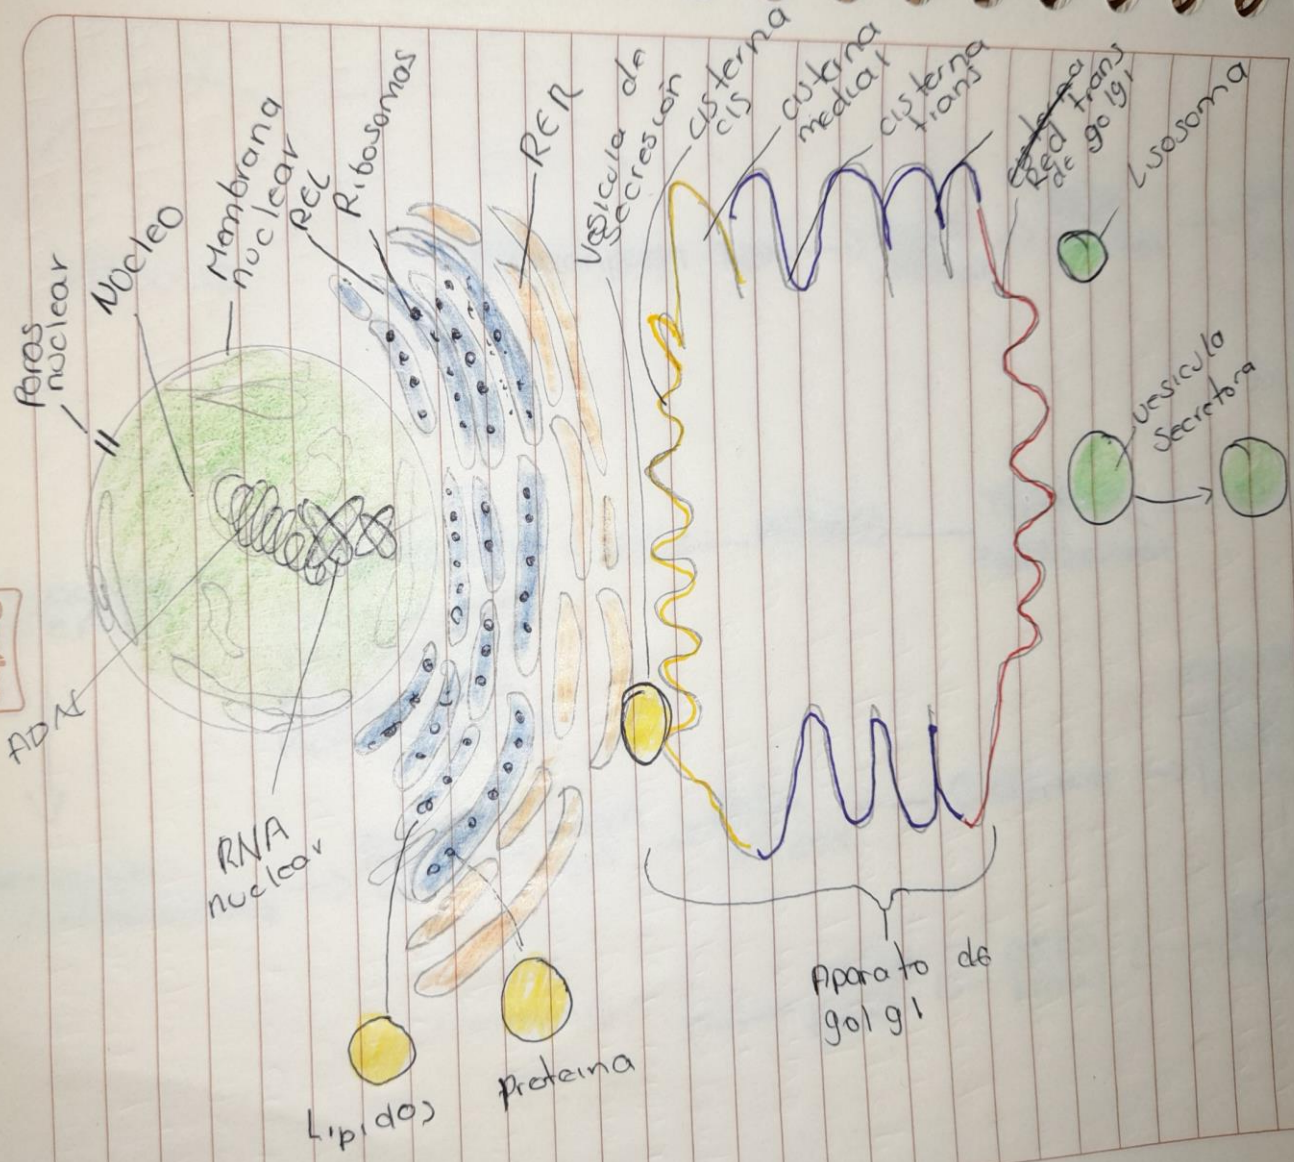 Poros
nuclear
Nucleo
Membrana
nuclear
REL
Ribosomas
RER
Vesicula de
secresión
cisterna
cis
cisterna
medial
cisterna
trans
Red trans
de golgi
Lisosoma
vesicula
secretora
ADN
RNA
nuclear
Lipidos
Proteina
Aparato de
golgi